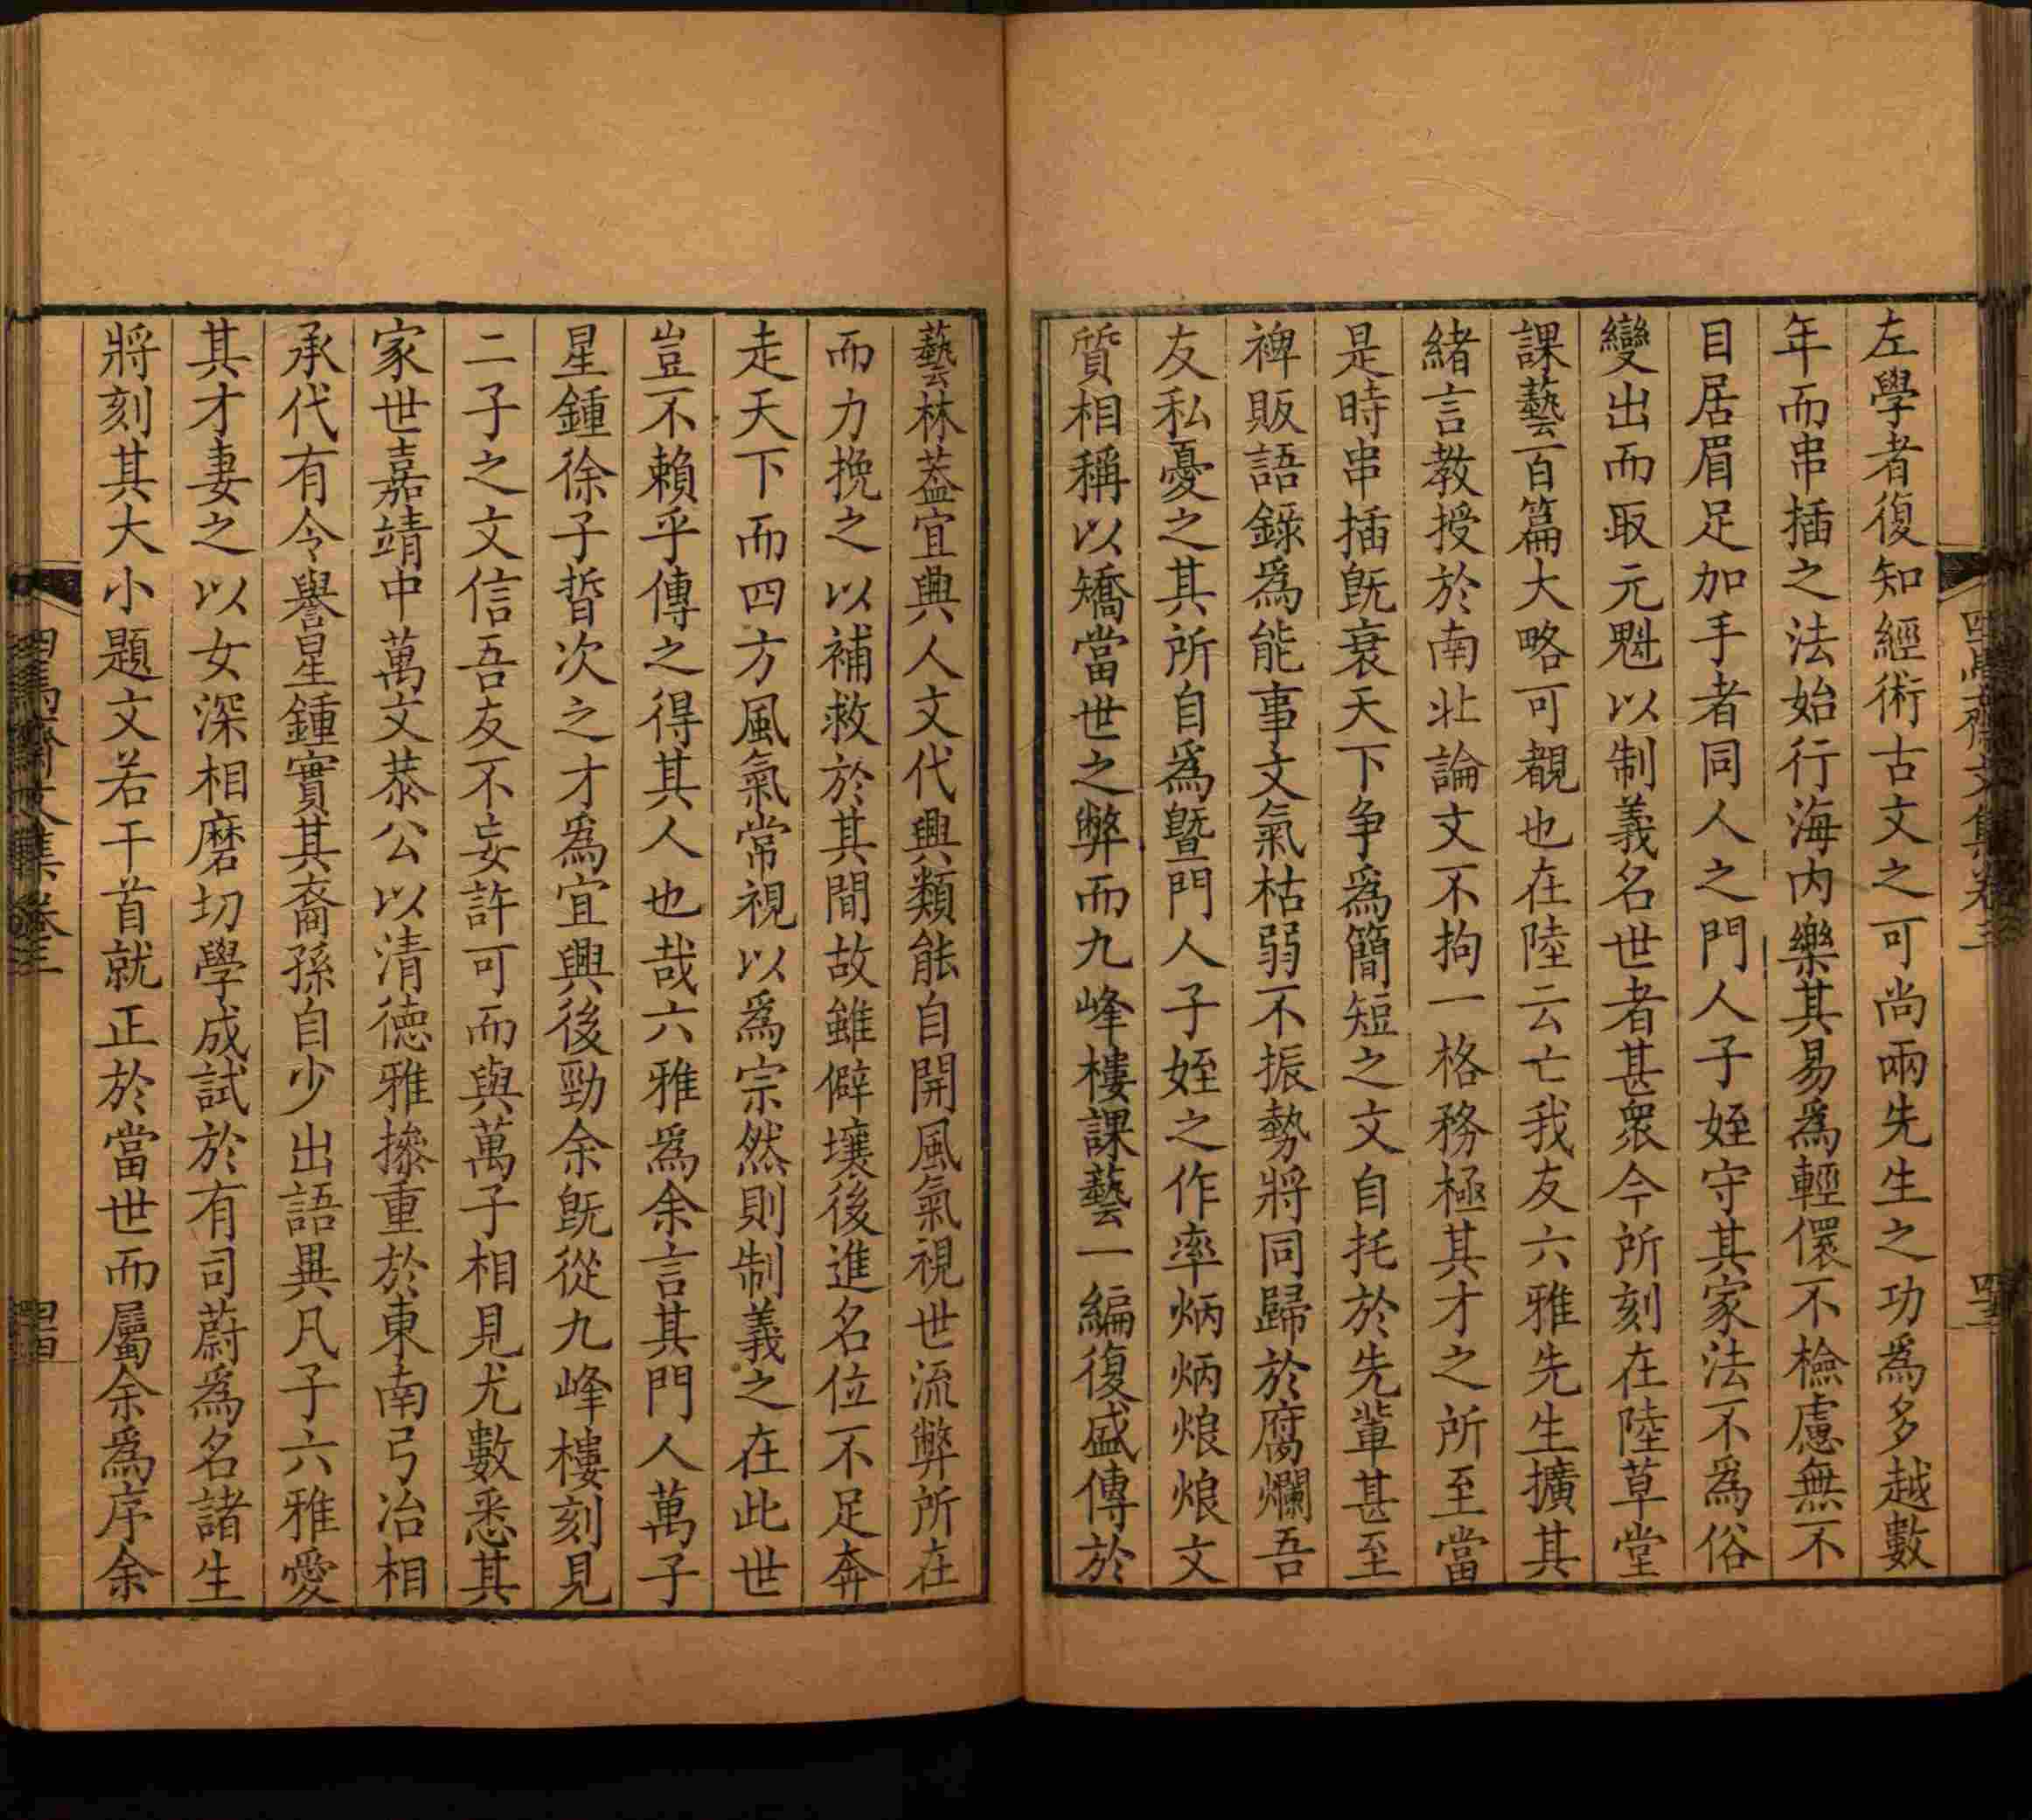 左學者復知經術古文之可尚兩先生之功爲多越數
年而串插之法始行海内樂其易爲輕儇不檢慮無不
目居眉足加手者同人之門人子姪守其家法不爲俗
變出而取元魁以制義名世者甚眾今所刻在陸草堂
課藝百篇大略可覩也在陸云亡我友六雅先生擴其
緒言教授於南北論文不拘一格務極其才之所至當
是時串插旣衰天下争爲簡短之文自托於先輩甚至
裨販語錄爲能事文氣枯弱不振勢將同歸於腐爛吾
友私憂之其所自爲暨門人子姪之作率炳炳烺烺文
質相稱以矯當世之弊而九峰樓課藝一編復盛傳於
四馬齋文集卷三
藝林葢宜興人文代興類能自開風氣視世流弊所在
而力挽之以補救於其間故雖僻壤後進名位不足奔
走天下而四方風氣常視以爲宗然則制義之在此世
豈不賴乎傳之得其人也哉六雅爲余言其門人萬子
星鍾徐子晢次之才爲宜興後勁余旣從九峰樓刻見
二子之文信吾友不妄許可而與萬子相見尤數悉其
家世嘉靖中萬文恭公以清德雅摻重於東南弓冶相
承代有令譽星鍾實其裔孫自少出語異凡子六雅愛
其才妻之以女深相磨切學成試於有司蔚爲名諸生
將刻其大小題文若干首就正於當世而屬余爲序余
四馬齋文集卷三